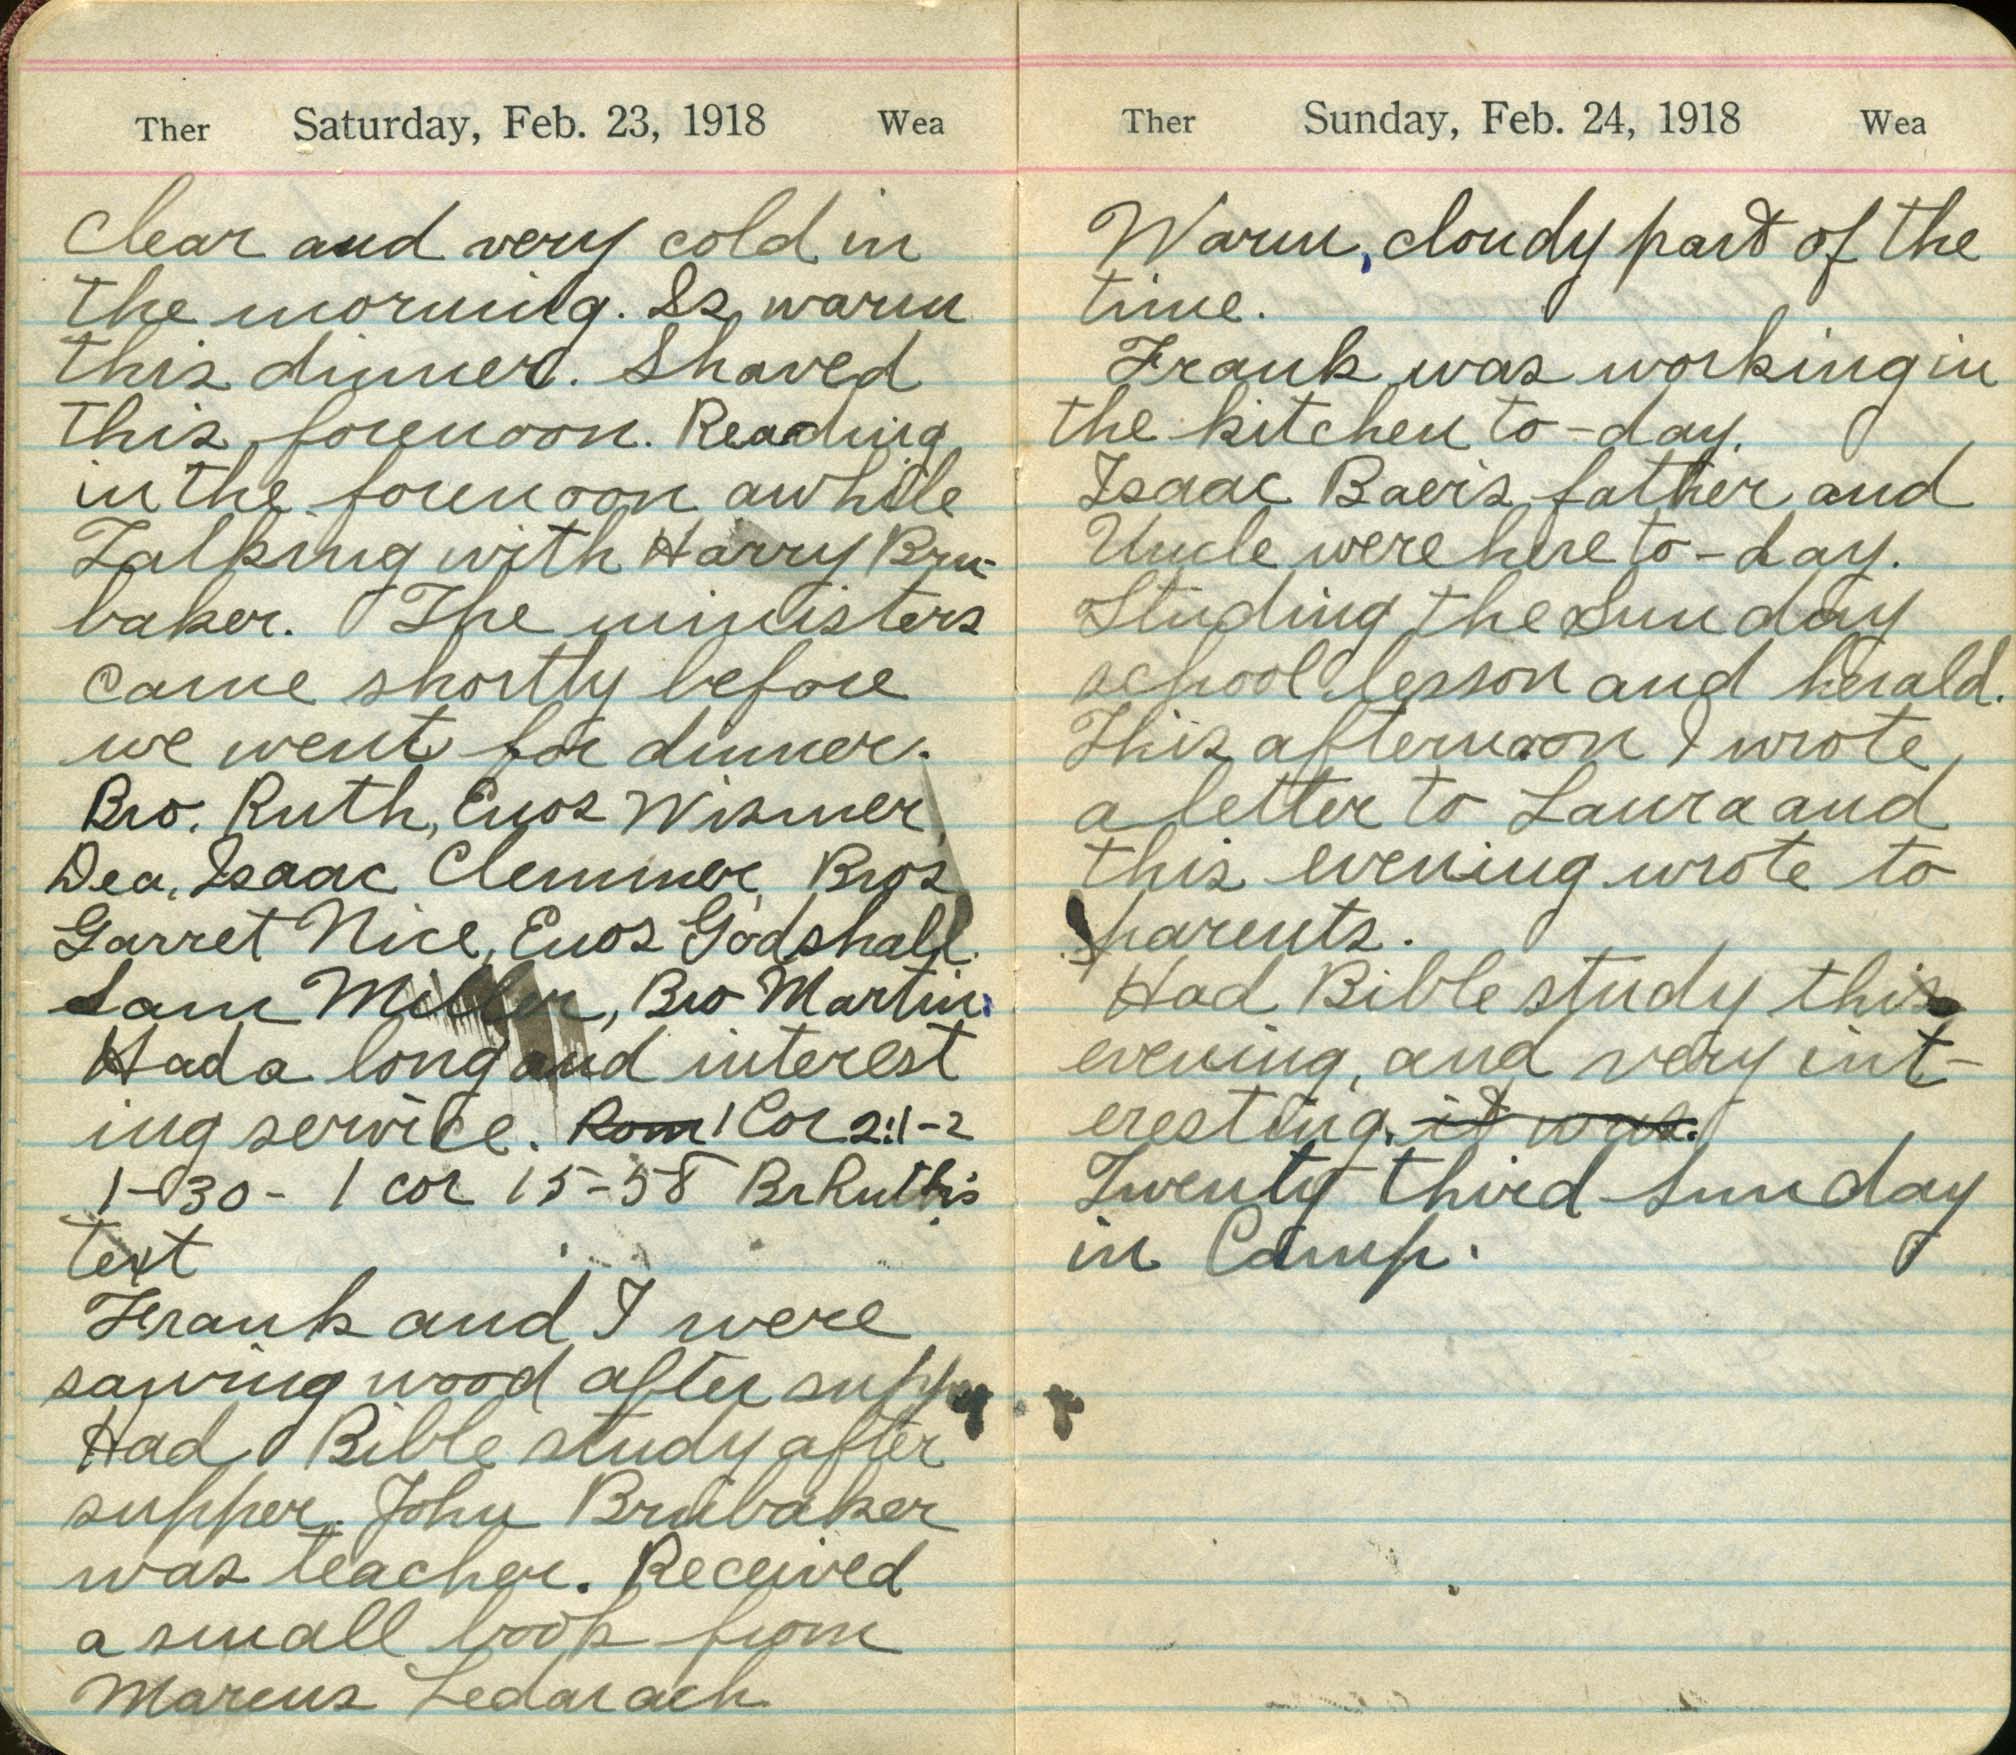 Ther Saturday, Feb. 23, 1918 Wea
Clear and very cold in
the morning. Is warm
this dinner. Shaved
this forenoon. Reading
in the forenoon awhile
Talking with Harry Bru-
baker. The ministers
came shortly before
we went for dinner.
Bro. Ruth, Enos Wismer,
Dea. Isaac Clemmer, Bros
Garret Nice, Enos Godshall.
Sam Miller, Bro Martin.
Had a long and interest
ing service. Rom 1 Cor 2:1-2
1-30- 1 cor 15-58 Br Ruth's
text
Frank and I were
sawing wood after supper
Had Bible study after
supper. John Brubaker
was teacher. Received
a small book from
Marcus Ledarach
Ther Sunday, Feb. 24, 1918 Wea
Warm, cloudy part of the
time.
Frank was working in
the kitchen to-day.
Isaac Baer's father and
Uncle were here to-day.
Studing the Sunday
school lesson and herald.
This afternoon I wrote
a letter to Laura and
this evening wrote to
parents.
Had Bible study this
evening, and very int-
eresting. it was.
Twenty third Sunday
in Camp.